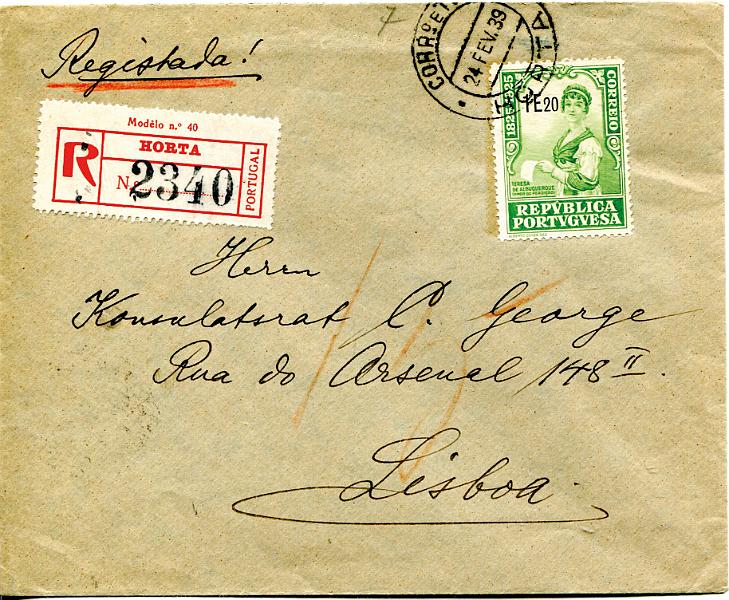 7
Registada!
CORREIOS
24 FEV. 39
HORTA
Modêlo n.º 40
R
HORTA
N.º 2340
PORTUGAL
1825-1925
CORREIO
1E20
TERESA
DE ALBUQUERQUE
REPVBLICA
PORTVGVESA
Herrn
Konsulatsrat C. George
Rua do Arsenal 148 II.
Lisboa.